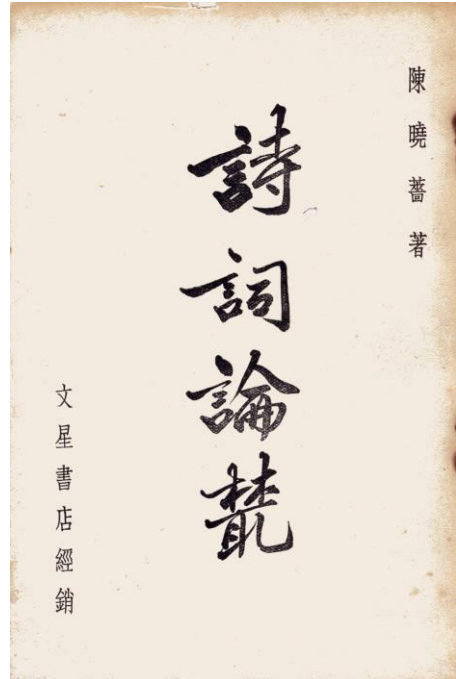 陳曉薔著
詩詞論叢
文星書店經銷